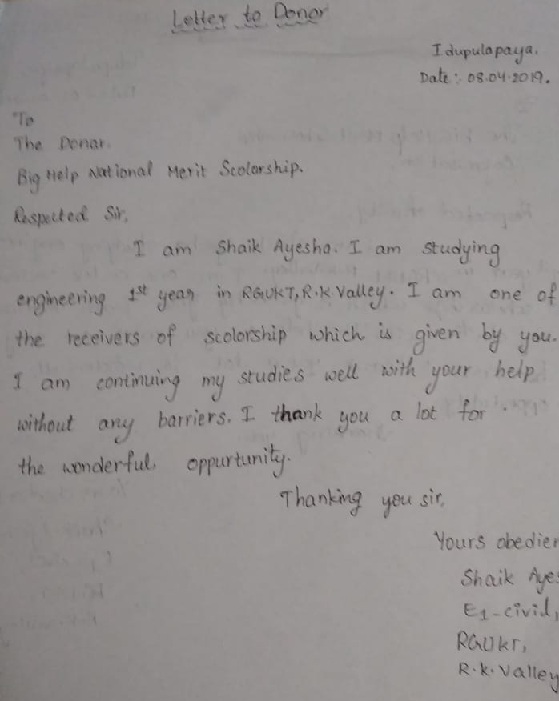 Letter to Donor
Idupulapaya.
Date: 08.04.2019.
To
The Donar.
Big Help National Merit Scolorship.
Respected Sir,
I am Shaik Ayesha. I am studying
engineering 1st year in RGUKT, R.K Valley. I am one of
the receivers of scolorship which is given by you.
I am continuing my studies well with your help
without any barriers. I thank you a lot for
the wonderful oppurtunity.
Thanking you sir,
Yours obedien
Shaik Ayes
E1-civil,
RGUKT,
R.K. Valley